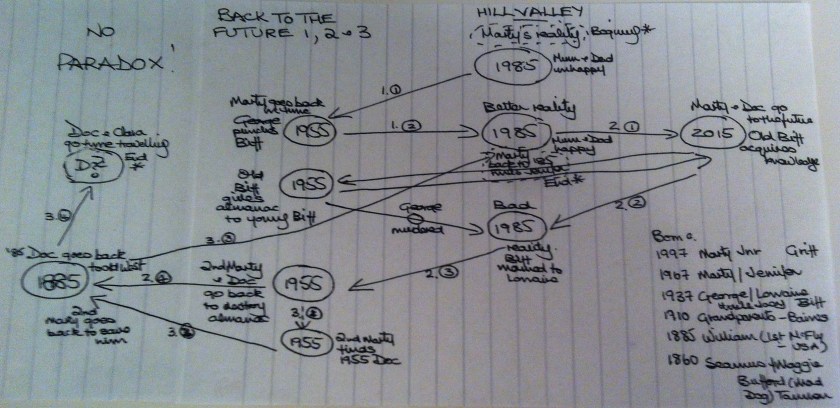 NO
PARADOX!
BACK TO THE
FUTURE 1, 2 & 3
HILL VALLEY
Marty's reality, Begining *
1985
Mum + Dad
unhappy
1. ①
Marty goes back
in time
George
punches
Biff
1955
1. ②
Better reality
1985
Mum + Dad
happy
2. ①
Marty + Doc go
to the future
2015
Old Biff
acquires
knowledge
Doc + Clara
go time travelling
D.Z!
End
*
Marty
back to '85
End *
Old
Biff
gives
almanac
to young Biff
1955
George
murdered
Bad
1985
reality.
Biff
married to
Lorraine
2. ②
3. ③
2. ③
'85 Doc goes back
to old West
1885
2nd
Marty goes
back to save
him
2nd Marty
+ Doc
go back
to destroy
almanac
1955
1955
2nd Marty
finds
1955 Doc
Born.
1997 Marty Jnr Griff
1967 Marty/Jenifer
1937 George/Lorraine
Biff
1910 Grandparents - Baines
1885 William (1st McFly
- USA)
1860 Seamus + Maggie
Bufford (Mad
Dog) Tannen